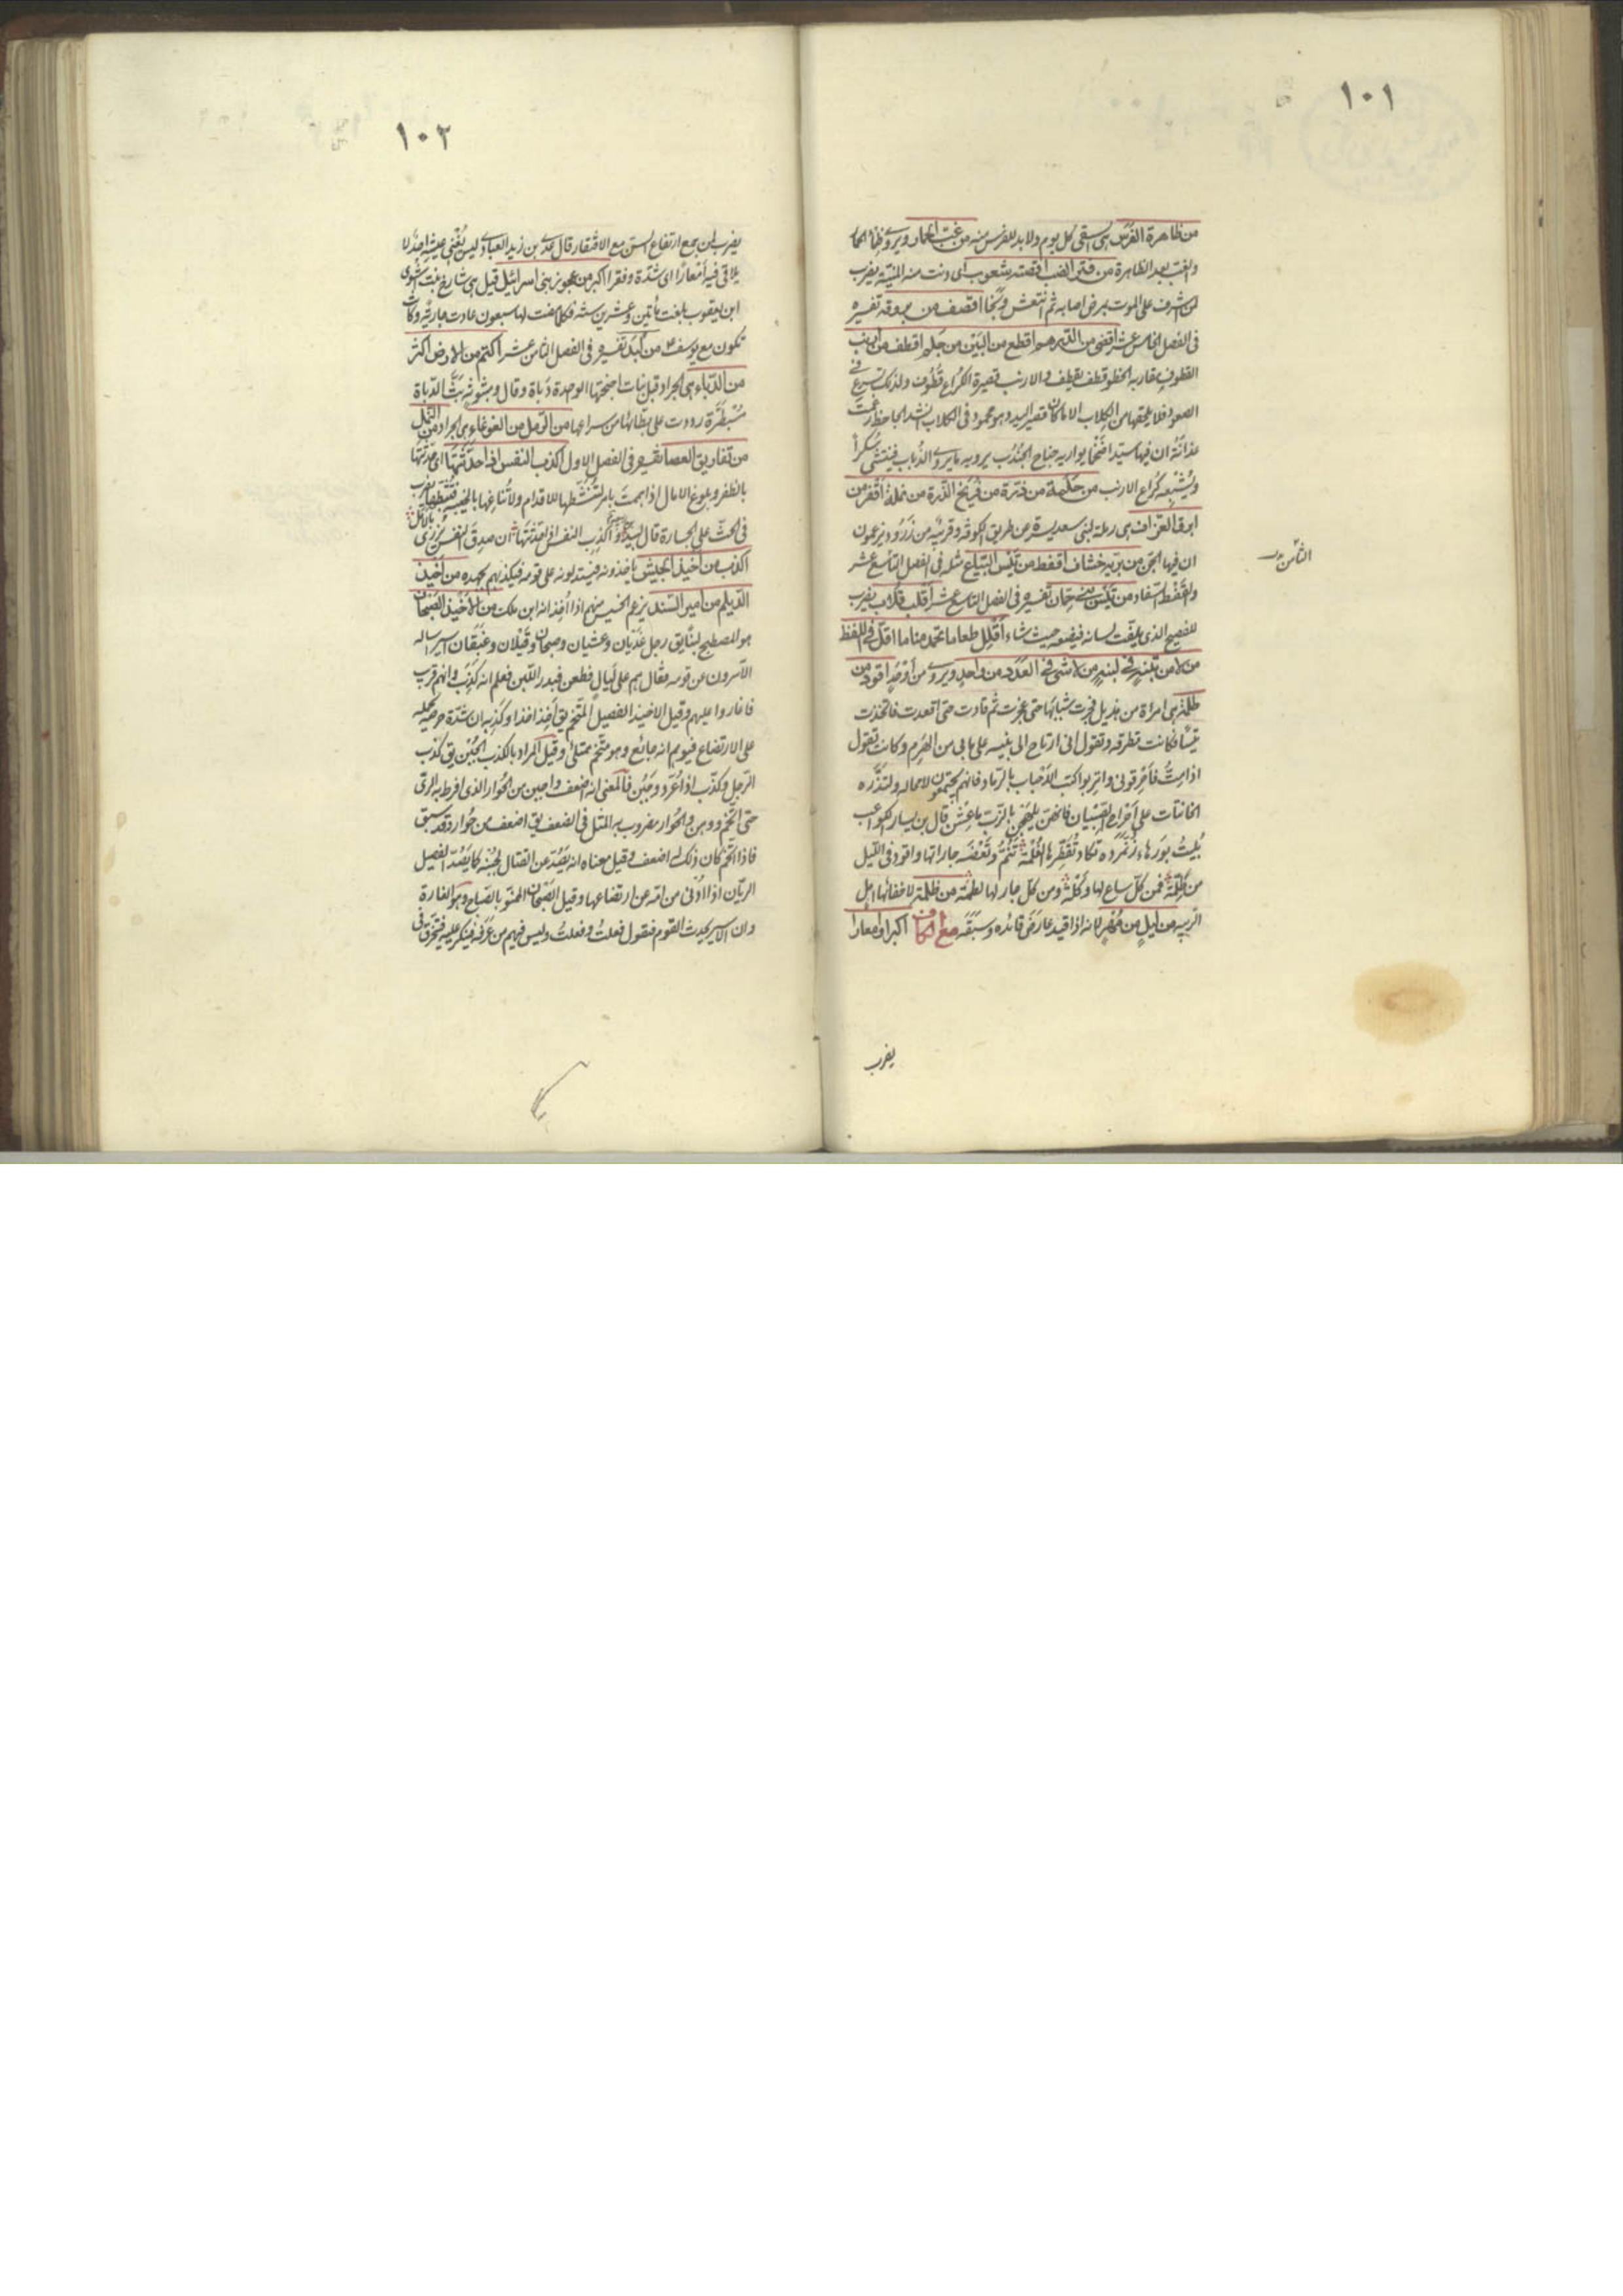 ١٠١
من ظاهرة الفرس هى تسقى كل يوم ولا بد للفرس منه من غب الحمار ويروى ظمأ الحمار
والغب بعد الظاهرة من فترة الضب اقصته شعوب اى دنت منه المنية يضرب
لمن اشرف على الموت بمرض اصابه ثم انتعش ونجا اقصف من بروقة تفسيره
فى الفصل الخامس عشر اقضى من الدرهم اقطع من البين من جلم اقطف من ارنب
القطوف مقاربة الخطو قطف يقطف والارنب قصيرة الكراع قطوف ولذلك تسرع فى
الصعود فلا يلحقها من الكلاب الا ما كان قصير اليد وهو محمود فى الكلاب
جناح الجندب يرويه ما يروى الذباب فينتشى سكرا
ويشبعه كراع الارنب من حلمة من ذرة من فريخ الذرة من نملة اقفر من
ابرق العزاف هى رملة لبنى سعد يسرة عن طريق الكوفة وقريبة من زرود يزعمون
ان فيها الجن من برية خشاف اقفط من تيس البياع مثله فى الفصل التاسع عشر
والقفط السفاد من تيس بنى حمان تفسيره فى الفصل التاسع عشر اقلب قلاب يضرب
للفصيح الذى يلفت لسانه فيضعه حيث شاء اقلل طعاما تحمد مناما اقل فى اللفظ
من لا من تبنة فى لبنة من لا شئ فى العدد من واحد ويروى من اوحد اقود من
ظلمة هى امرأة من هذيل فجرت شبابها حتى عجزت ثم قادت حتى اقعدت فاتخذت
تيسا فكانت تطرقه وتقول انى ارتاح الى نبيبه على ما بى من الهرم وكانت تقول
اذا مت فاحرقونى واتربوا كتب الاحباب بالرماد فانهم يجتمعون لا محالة ولتذره
الخاتنات على احراح الصبيان فانهن يلهجن بالزب ما عشن قال بن يسار الكواعب
بليت بورهاء زنمردة تكاد تقطرها الغلمة تنم وتعضه جاراتها واقود فى الليل
من ظلمة فمن كل ساع لها ركلة ومن كل جار لها لطمة من ظلمة لاخفائها اهل
الريبة من ليل من مهر لانه اذا قيد عارض قائده وسبقه مع الكاف اكبرا وامعارا
الثامن
يضرب
١٠٢
يضرب لمن يجمع ارتفاع السن مع الافتقار قال عدى بن زيد العبادى ليس يفنى عيشه احد لا
يلاقى فيه امعارا اى شدة وفقرا اكبر من عجوز بنى اسرائيل قيل هى شارخ بنت اشوى
ابن يعقوب بلغت مأتين وعشرين سنة فكلما مضت لها سبعون عادت جارية وكانت
تكون مع يوسف من كبد تفسيره فى الفصل الثامن عشر اكتم من الارض اكثر
من الدباء هى الجراد قبل نبات اجنحتها الواحدة دباة وقال وبثوثة بث الدباة
مسبطرة رددت على بطائها من سراعها من الرمل من الغوغاء هى الجراد من النمل
من تفاريق العصا تفسيره فى الفصل الاول اكذب النفس اذا حدثتها اى حدثها
بالظفر وبلوغ الامال اذا هممت بامر لتنشطها للاقدام ولا تنازعها بالخيبة فتثبطها يضرب
فى الحث على الجسارة قال لبيد واكذب النفس اذا حدثتها ان صدق النفس يزرى بالامل
اكذب من اخيذ الجيش ياخذونه فيستدلونه على قومه فيكذبهم بجهده من اخيذ
الديلم من اسير السند يزعم الخسيس منهم اذا اخذ انه ابن ملك من الاخيذ الصبحان
هو المصطبح لبنا يق رجل غديان وعشيان وصبحان وقيلان وغبقان اسير ساله
الآسرون عن قومه فقال هم على ليال فطعن فبدر اللبن فعلم انه كذب وانهم قرب
فاغاروا عليهم وقيل الاخيذ الفصيل المتخم يق اخذ اخذا وكذبه ان شدة حرصه تحمله
على الارتضاع فيوهم انه جائع وهو متخم ممتلئ وقيل المراد بالكذب الجبن يق كذب
الرجل وكذب اذا عرد وجبن فالمعنى انه اضعف واجبن من الحوار الذى افرط به الرى
حتى اتخم ووهن والحوار مضروب به المثل فى الضعف يق اضعف من حوار وقد سبق
فاذا اتخم كان ذلك له اضعف وقيل معناه انه يصد عن القتال لجبنه كما يصد الفصيل
الريان اذا ادنى من امه عن ارتضاعها وقيل الصبحان الممنو بالصباح وهو الغارة
وان الاسير يحدث القوم فيقول فعلت وفعلت وليس فيهم من عرفه فينكر عليه فيتخرق فى